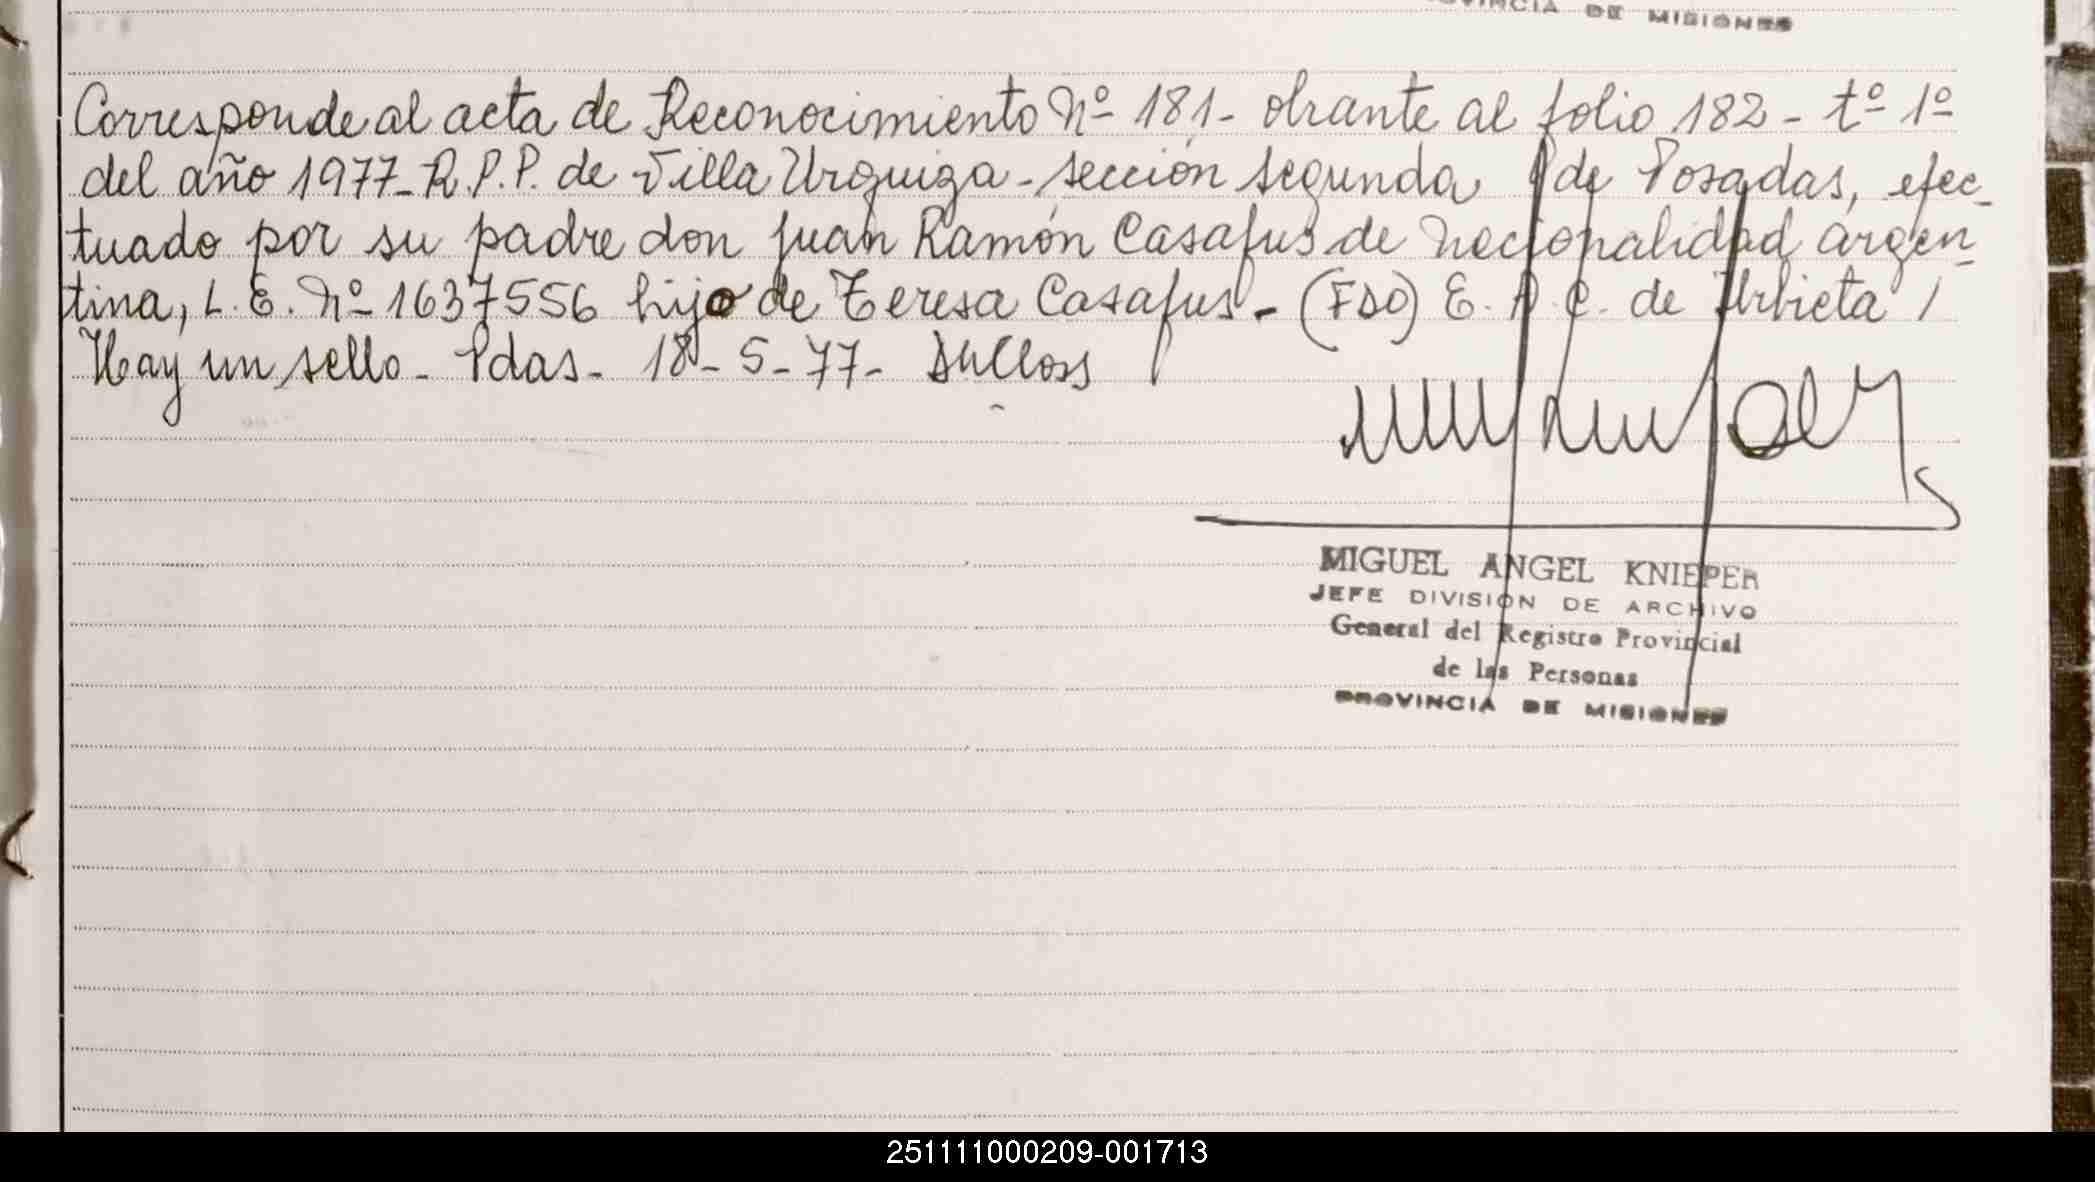 PROVINCIA DE MISIONES
Corresponde al acta de Reconocimiento Nº 181- obrante al folio 182 - tº 1º
del año 1977- R.P.P. de Villa Urquiza - sección segunda de Posadas, efec-
tuado por su padre don Juan Ramón Casafus de nacionalidad argen-
tina, L.E. Nº 1637556 hijo de Teresa Casafus - (FDO) E. A. C. de Urbieta /
Hay un sello - Pdas - 18 - 5 - 77 -
MIGUEL ANGEL KNIEPER
JEFE DIVISION DE ARCHIVO
General del Registro Provincial
de las Personas
PROVINCIA DE MISIONES
251111000209-001713